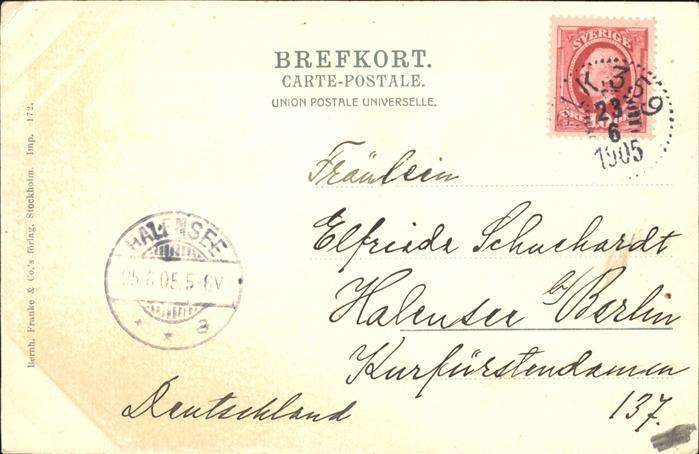 BREFKORT.
CARTE-POSTALE.
UNION POSTALE UNIVERSELLE.
SVERIGE
PLK.359
23
6
1905
Bernh. Franke & Co.'s förlag, Stockholm. Imp. 172.
Fräulein
Elfriede Schuchardt
Halensee b/Berlin
Kurfürstendamm
137.
Deutschland
HALENSEE
05 5-6V
* * a